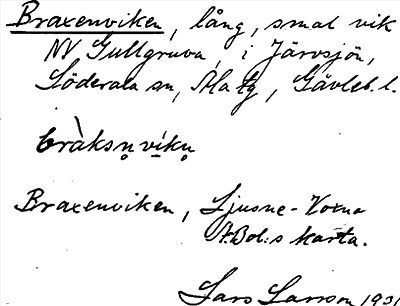 Braxenviken, lång, smal vik
NV Gullgruva, i Järvsjön,
Söderala sn, Ala tg, Gävleb. l.
bràksn̥víkn̥
Braxenviken, Ljusne-Voxna
A.Bol:s karta.
Lars Larsson 1931